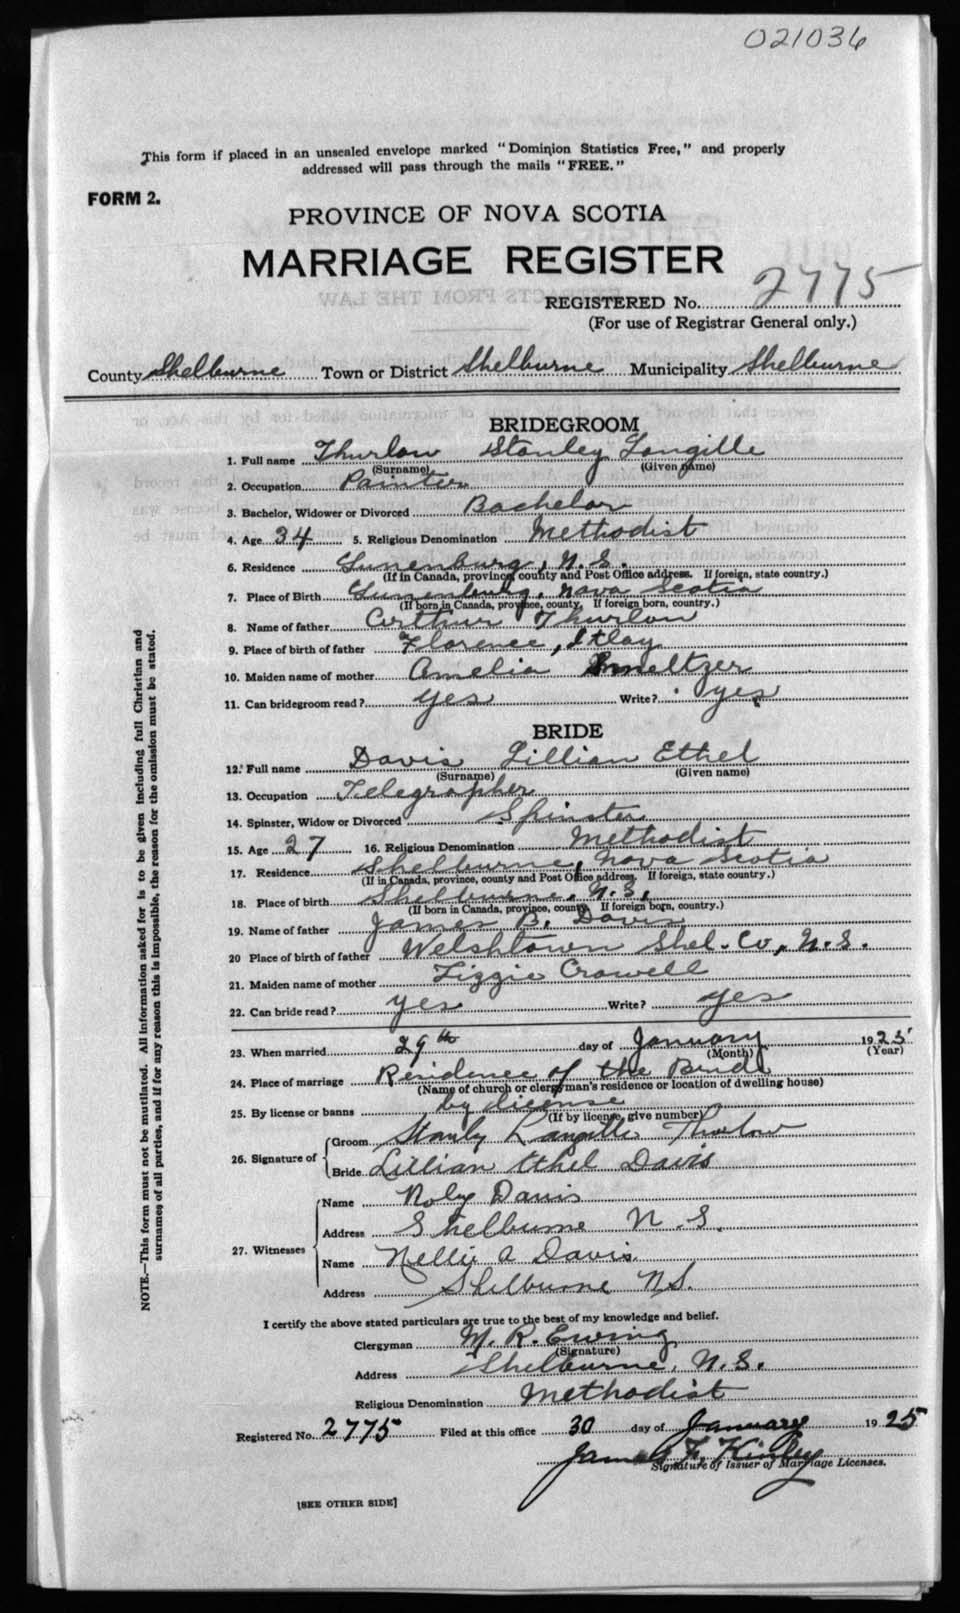 021036
This form if placed in an unsealed envelope marked "Dominion Statistics Free," and properly
addressed will pass through the mails "FREE."
FORM 2.
PROVINCE OF NOVA SCOTIA
MARRIAGE REGISTER
REGISTERED No. 2775
(For use of Registrar General only.)
County Shelburne Town or District Shelburne Municipality Shelburne
BRIDEGROOM
1. Full name Thurlow Stanley Langille
(Surname) (Given name)
2. Occupation Painter
3. Bachelor, Widower or Divorced Bachelor
4. Age 34 5. Religious Denomination Methodist
6. Residence Lunenburg, N.S.
(If in Canada, province, county and Post Office address. If foreign, state country.)
7. Place of Birth Lunenburg, Nova Scotia
(If born in Canada, province, county, If foreign born, country.)
8. Name of father Arthur Thurlow
9. Place of birth of father Florence, Itlay
10. Maiden name of mother Amelia Smeltzer
11. Can bridegroom read? yes Write? yes
BRIDE
12. Full name Davis Lillian Ethel
(Surname) (Given name)
13. Occupation Telegrapher
14. Spinster, Widow or Divorced Spinster
15. Age 27 16. Religious Denomination Methodist
17. Residence Shelburne, Nova Scotia
(If in Canada, province, county and Post Office address. If foreign, state country.)
18. Place of birth Shelburne, N.S.
(If born in Canada, province, county If foreign born, country.)
19. Name of father James B. Davis
20 Place of birth of father Welshtown Shel. Co, N.S.
21. Maiden name of mother Lizzie Crowell
22. Can bride read? yes Write? yes
23. When married 29th day of January 1925
(Month) (Year)
24. Place of marriage Residence of the Bride
(Name of church or clergyman's residence or location of dwelling house)
25. By license or banns by license
(If by license, give number)
26. Signature of Groom Stanly Langille Thurlow
Bride Lillian Ethel Davis
27. Witnesses Name Roly Davis
Address Shelburne N.S.
Name Nellie A Davis
Address Shelburne N.S.
I certify the above stated particulars are true to the best of my knowledge and belief.
Clergyman M. R. Ewing
(Signature)
Address Shelburne, N.S.
Religious Denomination Methodist
Registered No. 2775 Filed at this office 30 day of January 1925
James F. Kinley
Signature of Issuer of Marriage Licenses.
[SEE OTHER SIDE]
NOTE.—This form must not be mutilated. All information asked for is to be given including full Christian and
surnames of all parties, and if for any reason this is impossible, the reason for the omission must be stated.